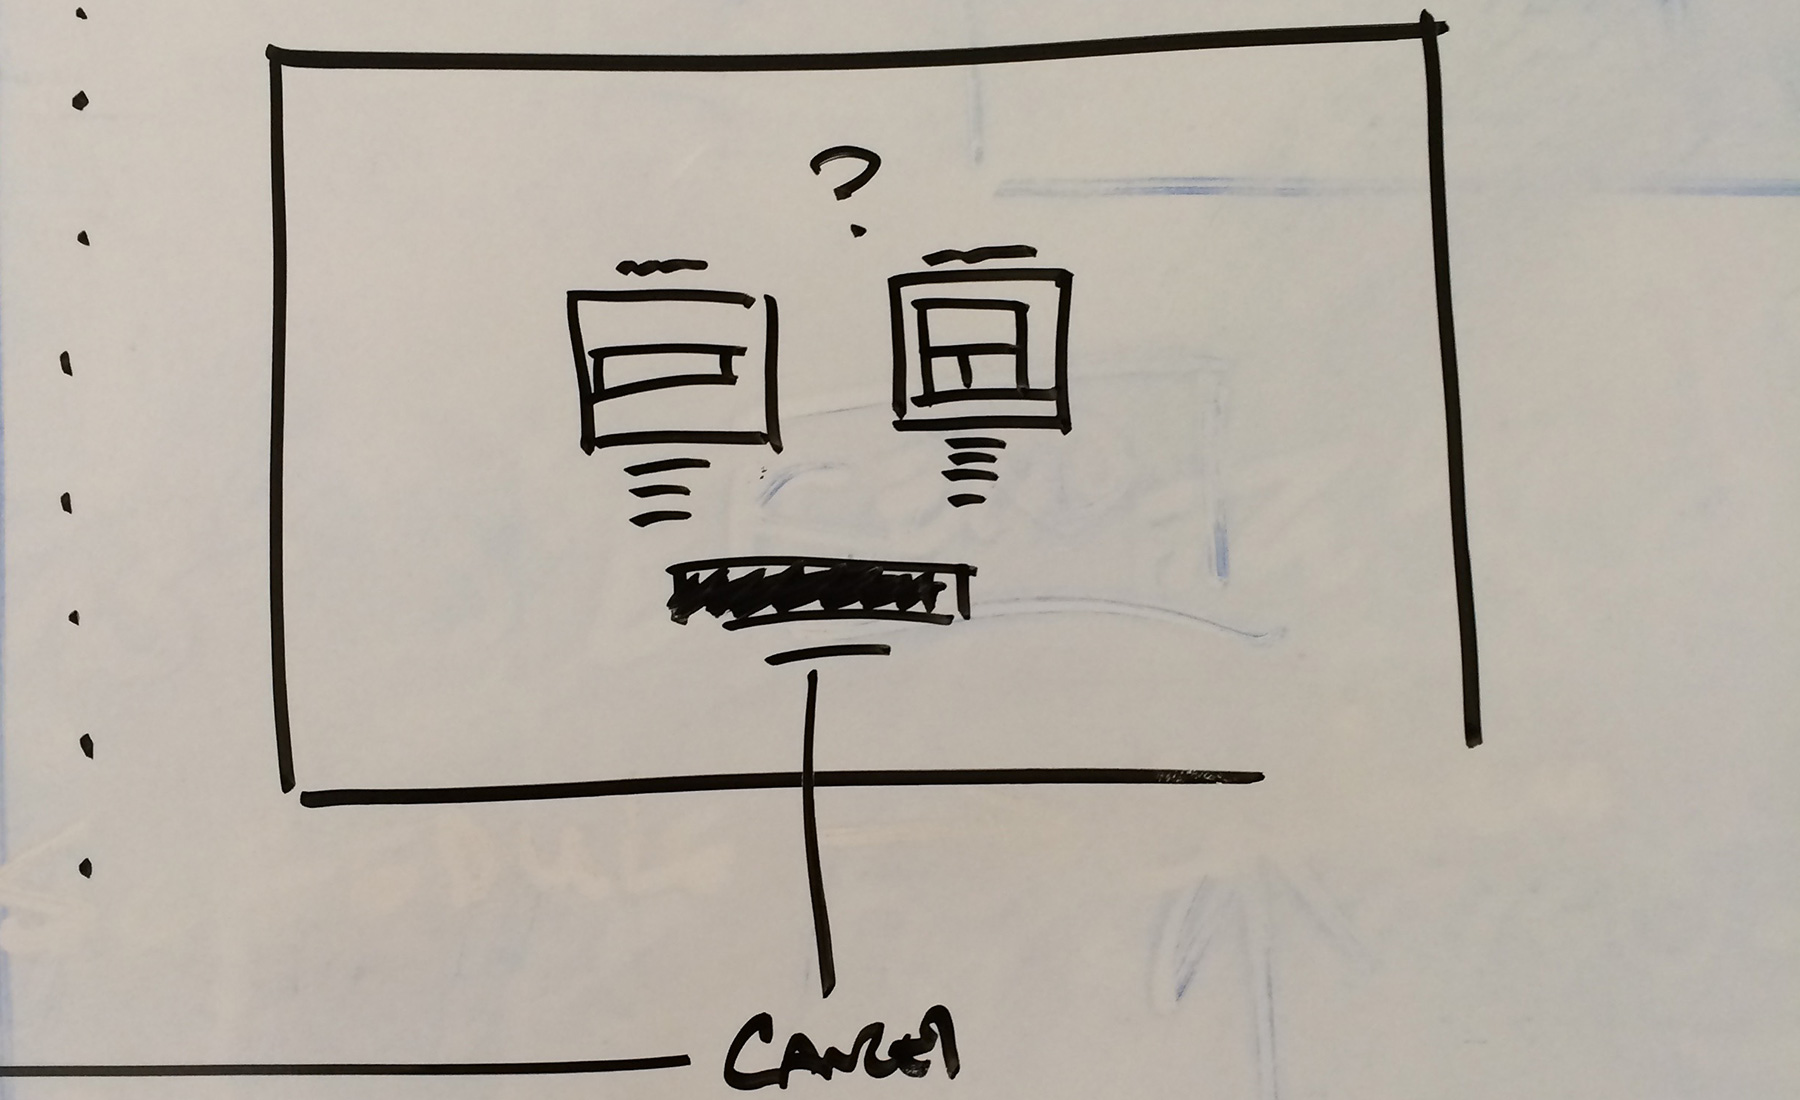 ?
CANCEL